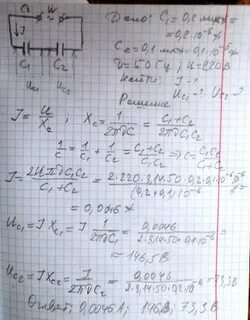 Дано: C₁ = 0,2 мкф =
= 0,2·10⁻⁶ ф
C₂ = 0,1 мкф = 0,1·10⁻⁶ ф
ν = 50 Гц, U = 220 В
Найти: J - ?
U_C₁ - ? U_C₂ - ?
Решение
C₁ C₂
U_C₁ U_C₂
J = U/X_C X_C = 1/(2πνC) = (C₁+C₂)/(2πνC₁C₂)
1/C = 1/C₁ + 1/C₂ = (C₁+C₂)/(C₁C₂) ⇒ C = C₁C₂/(C₁+C₂)
J = 2UπνC₁C₂/(C₁+C₂) = 2·220·3,14·50·0,2·0,1·10⁻⁶/(0,2+0,1)
= 0,0046 А
U_C₁ = J X_C₁ = J/(2πνC₁) = 0,0046/(2·3,14·50·0,2·10⁻⁶)
= 146,5 В
U_C₂ = J X_C₂ = J/(2πνC₂) = 0,0046/(2·3,14·50·0,2·10⁻⁶) = 73,3 В
Ответ: 0,0046 А; 146 В; 73,3 В